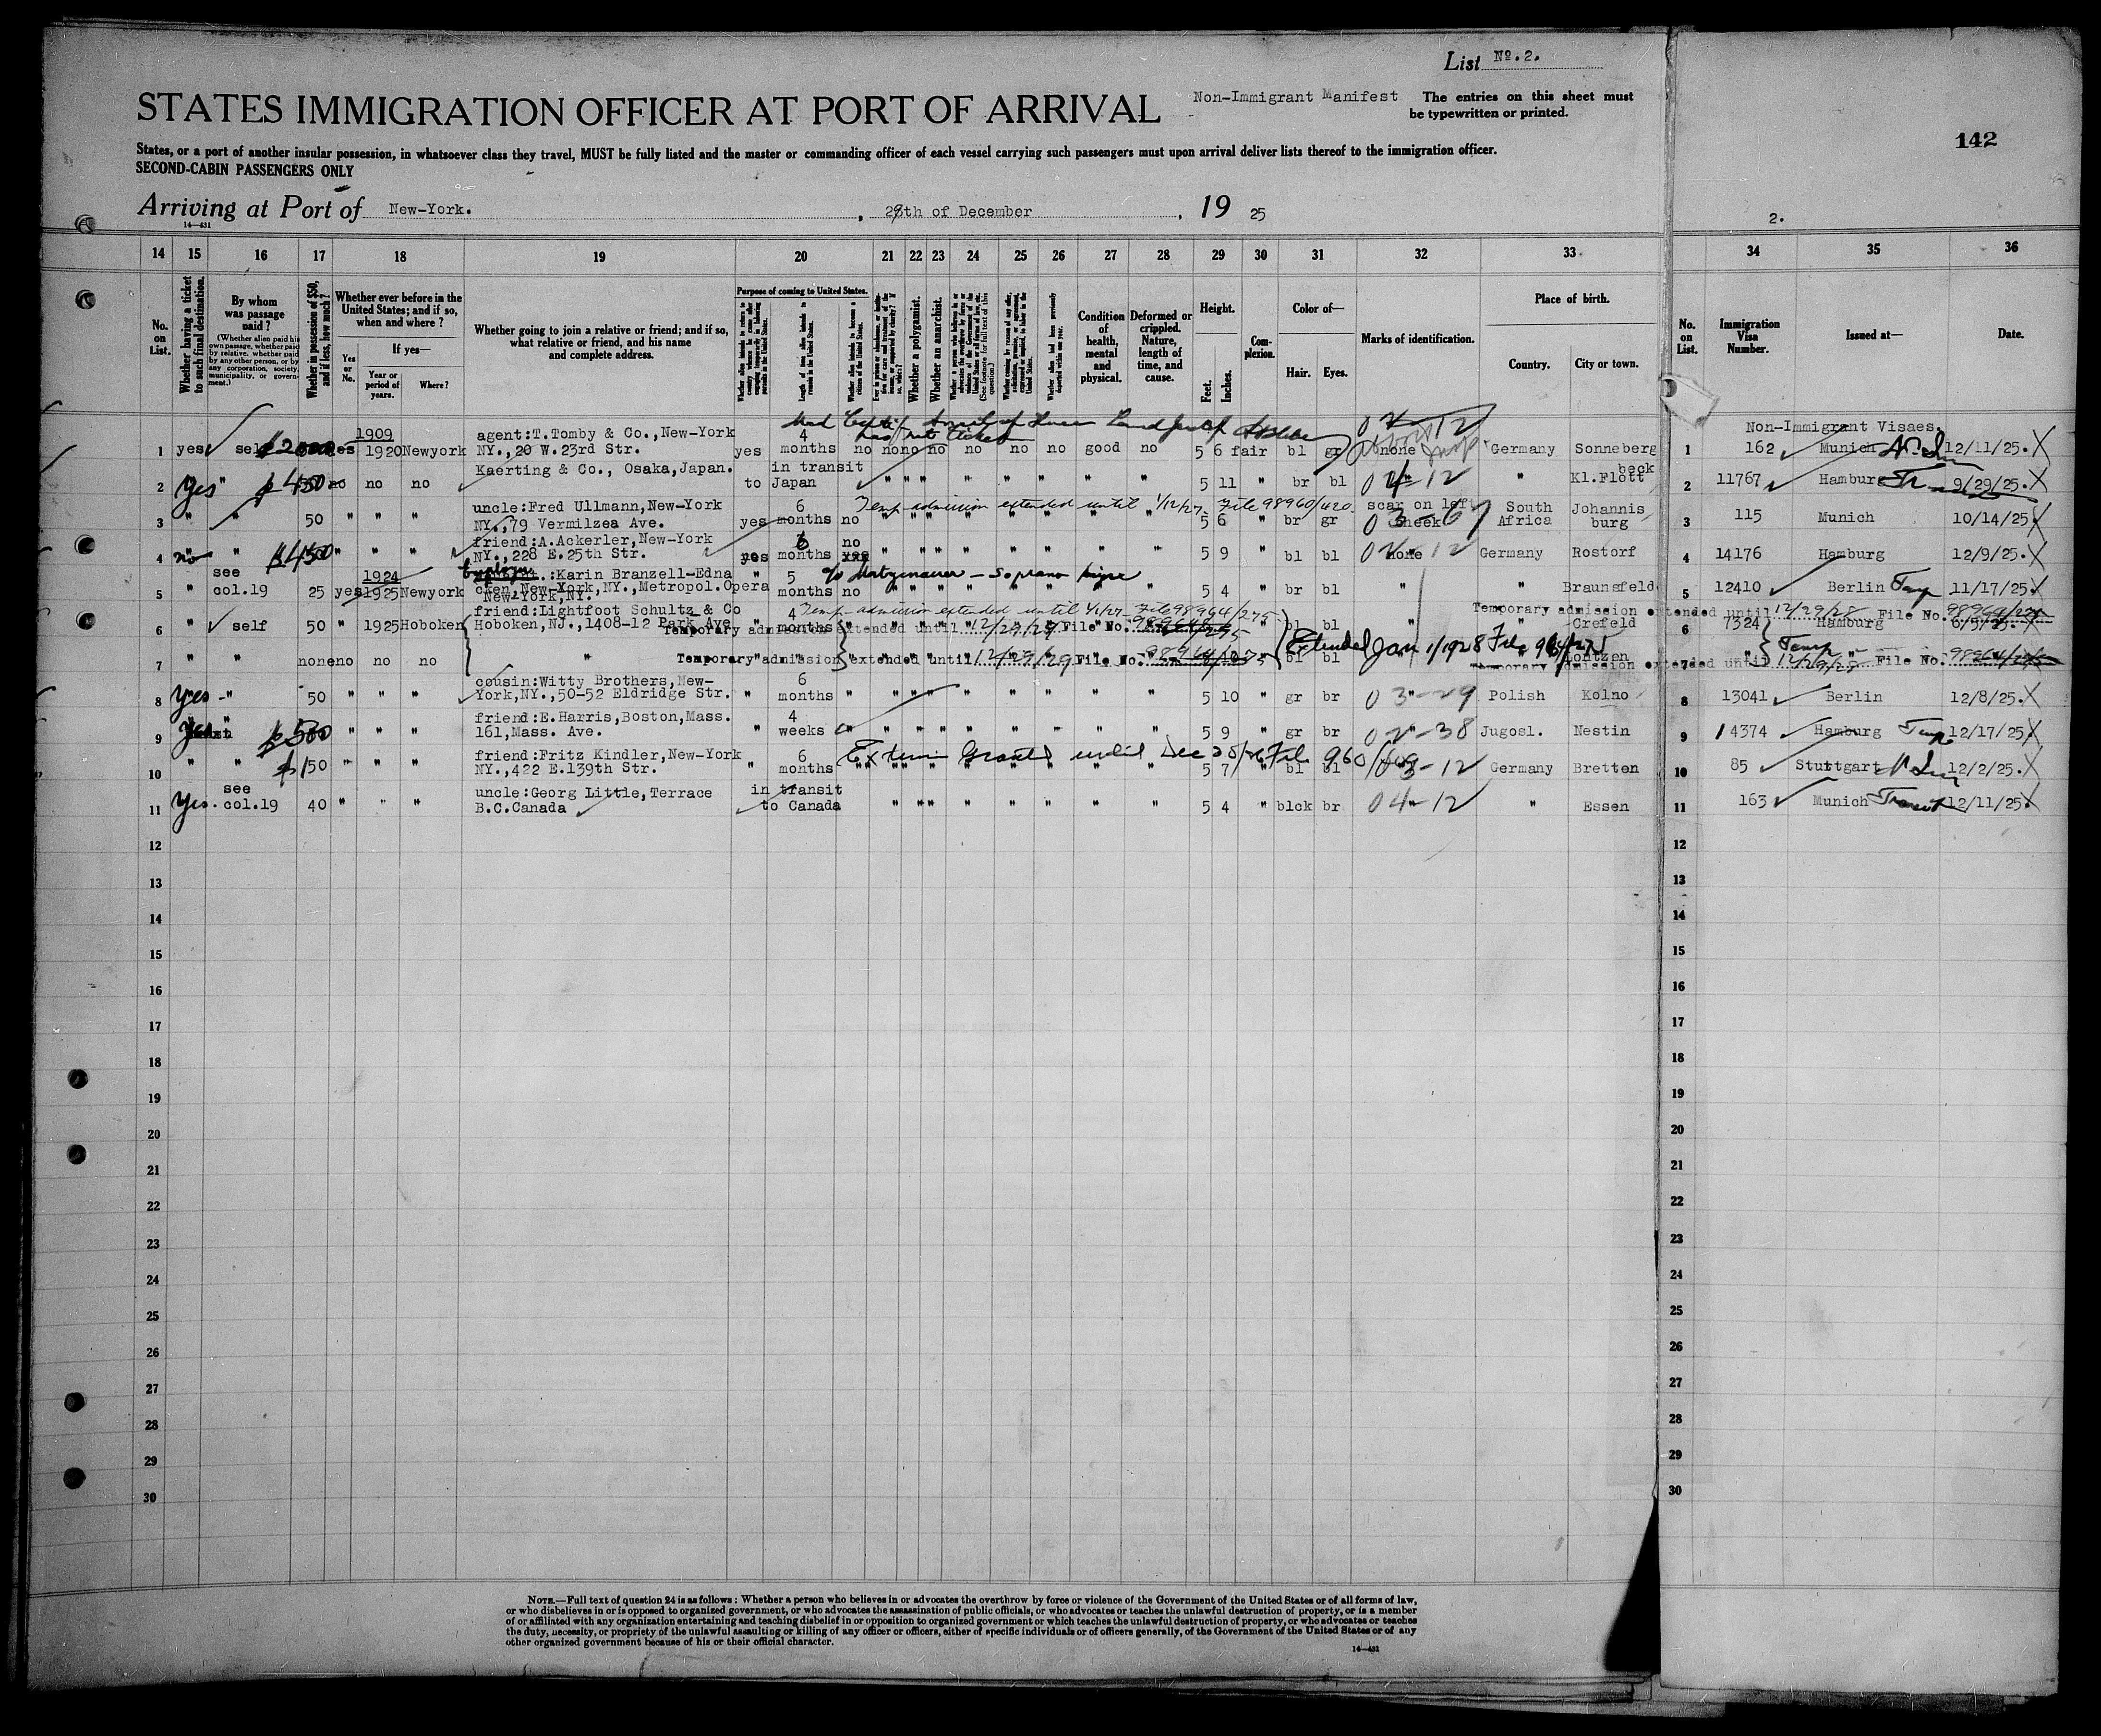 List No. 2.
STATES IMMIGRATION OFFICER AT PORT OF ARRIVAL
Non-Immigrant Manifest
The entries on this sheet must
be typewritten or printed.
142
States, or a port of another insular possession, in whatsoever class they travel, MUST be fully listed and the master or commanding officer of each vessel carrying such passengers must upon arrival deliver lists thereof to the immigration officer.
SECOND-CABIN PASSENGERS ONLY
Arriving at Port of New-York. , 29th of December , 19 25
14—431
2.
14 15 16 17 18 19 20 21 22 23 24 25 26 27 28 29 30 31 32 33 34 35 36
No. on List.
Whether having a ticket to such final destination.
By whom was passage paid?
(Whether alien paid his own passage, whether paid by relative, whether paid by any other person, or by any corporation, society, municipality, or government.)
Whether in possession of $50, and if less, how much?
Whether ever before in the United States; and if so, when and where?
Yes or No.
If yes—
Year or period of years.
Where?
Whether going to join a relative or friend; and if so, what relative or friend, and his name and complete address.
Purpose of coming to United States.
Length of time alien intends to remain in the United States.
Whether alien intends to become a citizen of the United States.
Whether a polygamist.
Whether an anarchist.
(See footnote for full text of this question.)
Condition of health, mental and physical.
Deformed or crippled. Nature, length of time, and cause.
Height.
Feet. Inches.
Complexion.
Color of—
Hair. Eyes.
Marks of identification.
Place of birth.
Country. City or town.
No. on List.
Immigration Visa Number.
Issued at—
Date.
Non-Immigrant Visaes.
1 yes self 1909 1920 Newyork agent:T.Tomby & Co.,New-York NY.,20 W.23rd Str. yes 4 months no no no no no no no good no 5 6 fair bl gr none Germany Sonneberg 1 162 Munich 12/11/25.
has not ticket
2 yes " $450 no no no Kaerting & Co., Osaka,Japan. in transit to Japan " " " " " " " " 5 11 " br bl 04-12 " Kl.Flottbeck 2 11767 Hamburg 9/29/25.
3 " " 50 " " " uncle:Fred Ullmann,New-York NY.,79 Vermilzea Ave. yes 6 months no Temp admission extended until 1/12/27- File 98960/420 5 6 " br gr scar on left cheek South Africa Johannisburg 3 115 Munich 10/14/25.
4 no " $450 " " " friend:A.Ackerler,New-York NY.,228 E.25th Str. yes 6 months no " " " " " " " " 5 9 " bl bl none Germany Rostorf 4 14176 Hamburg 12/9/25.
5 " see col.19 25 yes 1924 1925 Newyork Employer :Karin Branzell-Edna New-York,NY.,Metropol.Opera New-York,NY. " 5 months no c/o Matzenauer - Soprano 5 4 " br bl " " Braunsfeld 5 12410 Berlin Temp 11/17/25.
6 " self 50 " 1925 Hoboken friend:Lightfoot Schultz & Co Hoboken,NJ.,1408-12 Park Ave. " 4 months Temp admission extended until 1/1/27 - File 98964/275 bl bl " Crefeld 6 7324 Hamburg
Temporary admission extended until 12/29/28 File No. 98964/275
Temporary admission extended until 12/29/29 File No.
7 " " none no no no " Temporary admission extended until 12/29/29 File No. 98964/275 bl bl Extended Jan 1/1928 7 " Temp "
Temporary admission extended until 12/29/28 File No. 98964/275
8 yes - " 50 " " " cousin:Witty Brothers,New-York,NY.,50-52 Eldridge Str. " 6 months " " " " " " " " " 5 10 " gr br 03-29 Polish Kolno 8 13041 Berlin 12/8/25.
9 yes $500 " " " friend:E.Harris,Boston,Mass. 161,Mass. Ave. " 4 weeks " " " " " " " " " 5 9 " gr br 02-38 Jugosl. Nestin 9 14374 Hamburg Temp 12/17/25
10 " " $150 " " " friend:Fritz Kindler,New-York NY.,422 E.139th Str. " 6 months Granted until Dec 28/26 File 5 7 " bl bl Germany Bretten 10 85 Stuttgart 12/2/25.
11 Yes. see col.19 40 " " " uncle:Georg Little,Terrace B.C.Canada in transit to Canada " " " " " " " " 5 4 " blck br 04-12 " Essen 11 163 Munich Transit 12/11/25.
12 12
13 13
14 14
15 15
16 16
17 17
18 18
19 19
20 20
21 21
22 22
23 23
24 24
25 25
26 26
27 27
28 28
29 29
30 30
NOTE.—Full text of question 24 is as follows: Whether a person who believes in or advocates the overthrow by force or violence of the Government of the United States or of all forms of law,
or who disbelieves in or is opposed to organized government, or who advocates the assassination of public officials, or who advocates or teaches the unlawful destruction of property, or is a member
of or affiliated with any organization entertaining and teaching disbelief in or opposition to organized government or which teaches the unlawful destruction of property, or who advocates or teaches
the duty, necessity, or propriety of the unlawful assaulting or killing of any officer or officers, either of specific individuals or of officers generally, of the Government of the United States or of any
other organized government because of his or their official character.
14—431